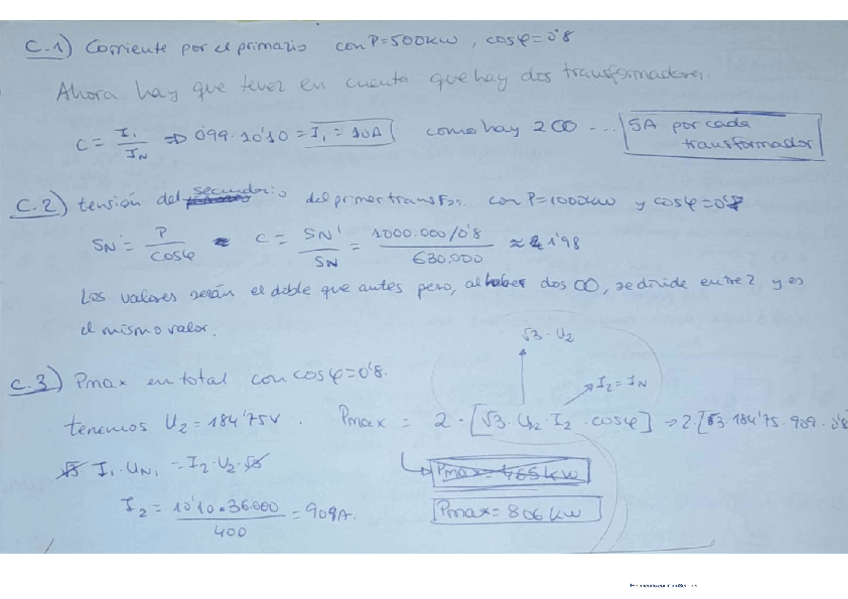 C.1) Corriente por el primario con P=500kW, cosφ=0'8
Ahora hay que tener en cuenta que hay dos transformadores.
C = I₁/I_N ⇒ 0'99·10'10 = I₁ = 10A como hay 2 ... 5A por cada transformador
C.2) tensión del secundario del primer transf con P=1000kW y cosφ=0'8
S_N' = P/cosφ C = S_N'/S_N = 1000.000/0'8 / 630.000 ≈ 1'98
Los valores serán el doble que antes pero, al haber dos, se divide entre 2 y es
el mismo valor.
√3·U₂
C.3) Pmax en total con cosφ=0'8.
I₂=I_N
tenemos U₂=184'75V. Pmax = 2·[√3·U₂·I₂·cosφ] → 2·[√3·184'75·909·0'8
√3 I₁·U_N₁ = I₂·U₂·√3
Pmax=465kW
I₂ = 10'10·36.000/400 = 909A.
Pmax=806kW